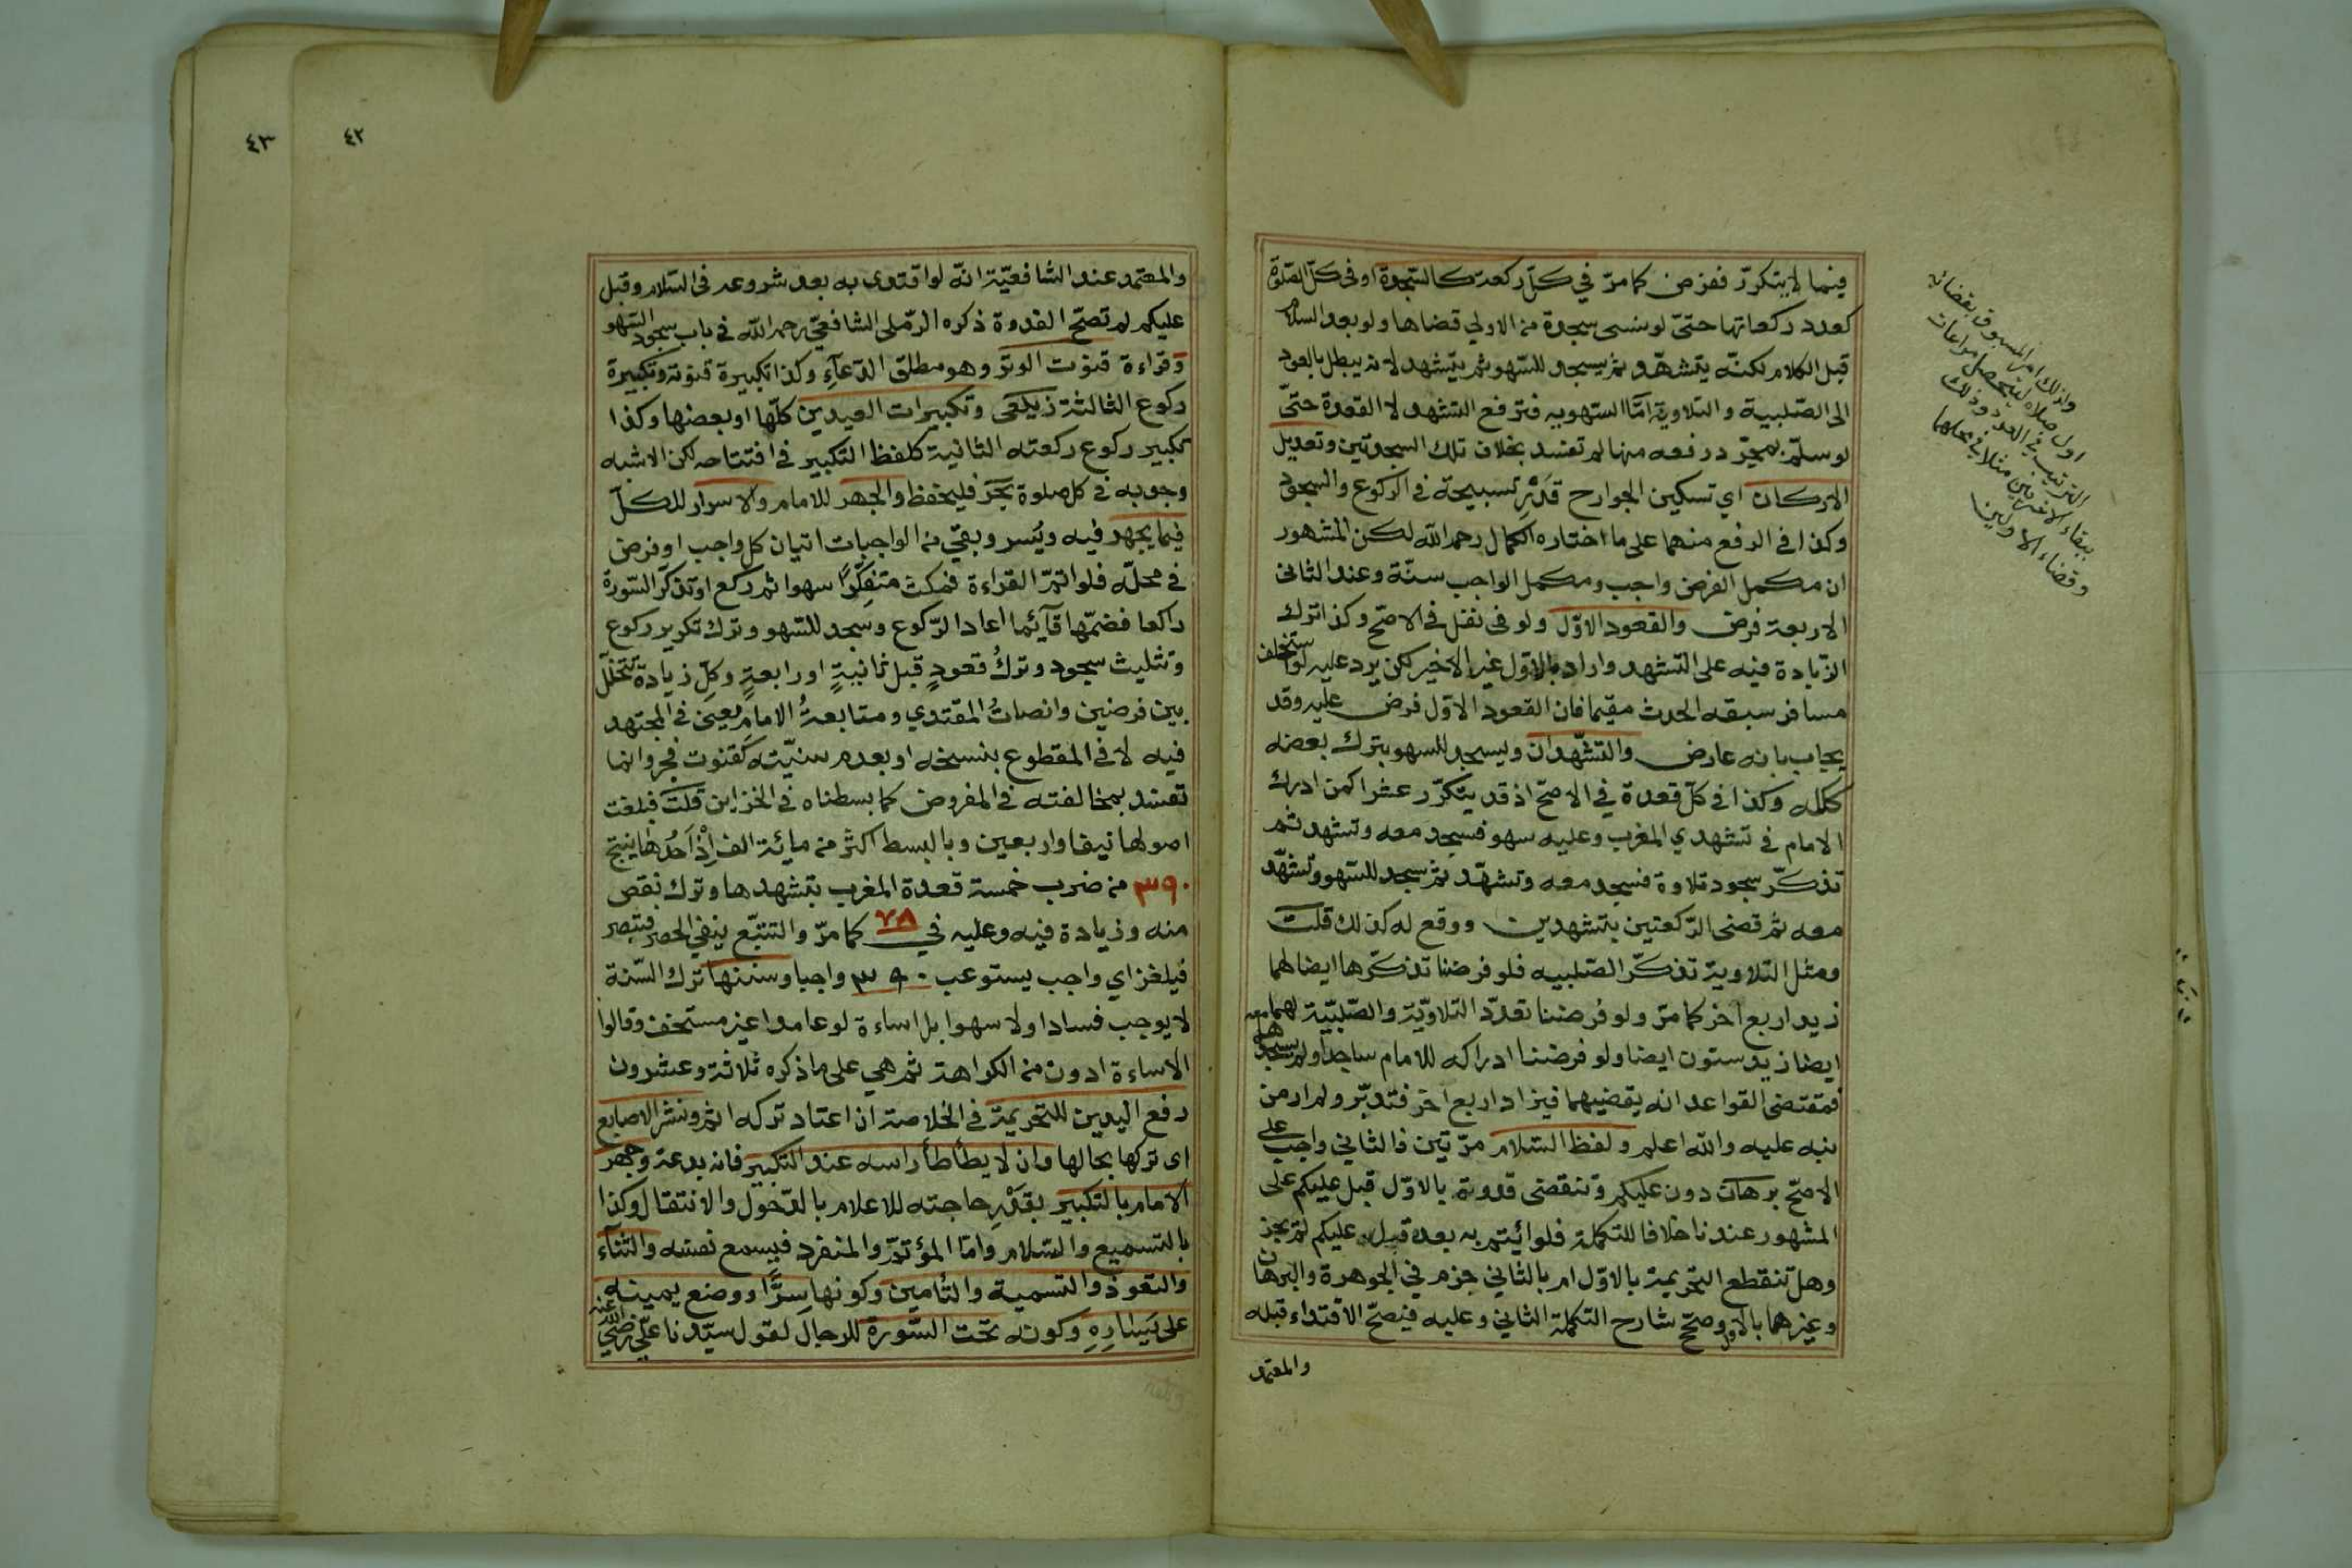 فيما لا يتكرر ففرض كما مرّ في كلّ ركعة كالسّجدة او في كلّ الصّلوة
كعدد ركعاتها حتىّ لو نسى سجدة من الاولي قضاها ولو بعد السلام
قبل الكلام لكنّه يتشهّد ثم يسجد للسّهو ثم يتشهد لانه يبطل بالعود
الى الصّلبية والتلاوية امّا السّهوية فترفع التشهد لا القعدة حتىّ
لو سلّم بمجرّد رفعه منها لم تفسد بخلاف تلك السجدتين وتعديل
الاركان اي تسكين الجوارح قَدْرَ تسبيحة في الركوع والسجود
وكذا في الرفع منهما على ما اختاره الكمال رحمه الله لكن المشهور
ان مكمل الفرض واجب ومكمل الواجب سنّة وعند الثانى
الاربعة فرض والقعود الاوّل ولو فى نفل فى الاصحّ وكذا ترك
الزّيادة فيه على التشهد واراد بالاوّل غير الاخير لكن يرد عليه لو استخلف
مسافر سبقه الحدث مقيما فان القعود الاوّل فرض عليه وقد
يجاب بانه عارض والتشهّدان ويسجد للسهو بترك بعضه
ككله وكذا في كلّ قعدة في الاصحّ اذ قد يتكرّر عشرا كمن ادرك
الامام في تشهدي المغرب وعليه سهو فسجد معه وتشهد ثم
تذكّر سجود تلاوة فسجد معه وتشهّد ثم سجد للسّهو وتشهّد
معه ثم قضى الرّكعتين بتشهدين ووقع له كذلك قلت
ومثل التلاوية تذكّر الصّلبيه فلو فرضنا تذكّرها ايضا لهما
زيد اربع اخر كما مرّ ولو فرضنا تعدّد التلاويّة والصّلبيّة لهما معه
ايضا زيد ستون ايضا ولو فرضنا ادراكه للامام ساجدا ولم يسجدهما
فمقتضى القواعد انه يقضيهما فيزاد اربع اخر فتدبّر ولم ار من
نبه عليه والله اعلم ولفظ السّلام مرّتين فالثاني واجب على
الاصحّ برهان دون عليكم وتنقضى قدوته بالاوّل قبل عليكم على
المشهور عندنا خلافا للتكملة فلو ائيتم به بعده قبل عليكم لم يجز
وهل تنقطع التحريمة بالاوّل ام بالثاني جزم في الجوهرة والبرهان
وغيرهما بالاول وصحّح شارح التكملة الثاني وعليه فيصحّ الاقتداء قبله
والمعتمد
ولذلك امر المسبوق بقضائه
اول صلاه ليتحصل مراعات
الترتيب في العدد وذلك
ببقاء الاخريين مثلا في محلهما
وقضاء الاولين
٤٢
٤٣
والمعتمد عند الشافعيّة انّه لو اقتدى به بعد شروعه فى السّلام وقبل
عليكم لم تصحّ القدوة ذكره الرّملى الشافعيّ رحمه اللّه في باب سجود السّهو
وقراءة قنوت الوتر وهو مطلق الدّعآء وكذا تكبيرة قنوته وتكبيرة
ركوع الثالثة زيلعى وتكبيرات العيدين كلّها او بعضها وكذا
تكبير ركوع ركعته الثانية كلفظ التكبير في افتتاحه لكن الاشبه
وجوبه في كل صلوة بحر فليحفظ والجهر للامام والاسرار للكلّ
فيما يجهر فيه ويُسر وبقي من الواجبات اتيان كل واجب او فرض
في محلّه فلو اتمّ القراءة فمكث متفكّرًا سهوا ثم ركع او تذكّر السّورة
راكعا فضمّها قآئما اعاد الرّكوع وسجد للسّهو وترك تكرير ركوع
وتثليث سجود وتركُ قعودٍ قبل ثانيةٍ او رابعةٍ وكلّ زيادة تتخلّل
بين فرضين وانصاتُ المقتدي ومتابعةُ الامام يعنى في المجتهد
فيه لا في المقطوع بنسخه او بعدم سنيّته كقنوت فجر وانما
تفسد بمخالفته في المفروض كما بسطناه في الخزاين قلت فبلغت
اصولها نيفا واربعين وبالبسط اكثر من مايئة الف اِذْ اَحَدُها ينتج
٣٩٠ من ضرب خمسة قعدة المغرب بتشهدها وترك نقص
منه وزيادة فيه وعليه في ٧٨ كما مرّ والتتبّع ينفي الحصر فتبصر
فيلغز اي واجب يستوعب ٣٩٠ واجبا وسننها ترك السّنة
لا يوجب فسادا ولا سهوا بل اساءة لو عامدا غير مستخف وقالوا
الاساءة ادون من الكراهة ثم هي على ما ذكره ثلاثة وعشرون
رفع اليدين للتحريمة في الخلاصة ان اعتاد تركه اثم ونشر الاصابع
اى تركها بحالها وان لا يطأطأ راسه عند التكبير فانه بدعة وجهر
الامام بالتكبير بقَدْرِ حاجته للاعلام بالدّخول والانتقال وكذا
بالتسميع والسّلام وامّا المؤتمّ والمنفرد فيسمع نفسه والثنآء
والتعوذ والتسمية والتأمين وكونها سِرًّا ووضع يمينه
على يَسَارِهِ وكونه تحت السّورة للرجال لقول سيّدنا عليّ رضي الله عنه